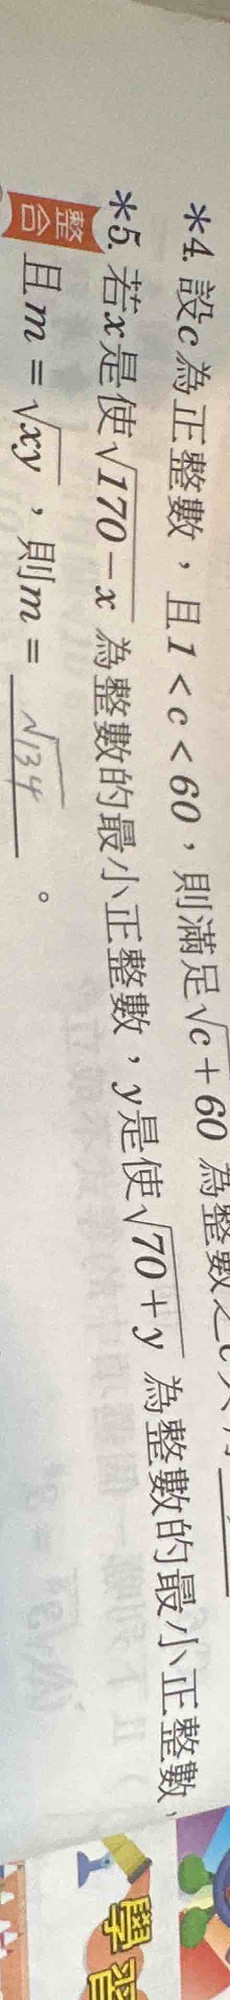 *4. 設c為正整數，且1 < c < 60，則滿足√c + 60 為整數之c
*5. 若x是使√170 − x 為整數的最小正整數，y是使√70 + y 為整數的最小正整數，
整合 且m = √xy ，則m = √134 。
學習